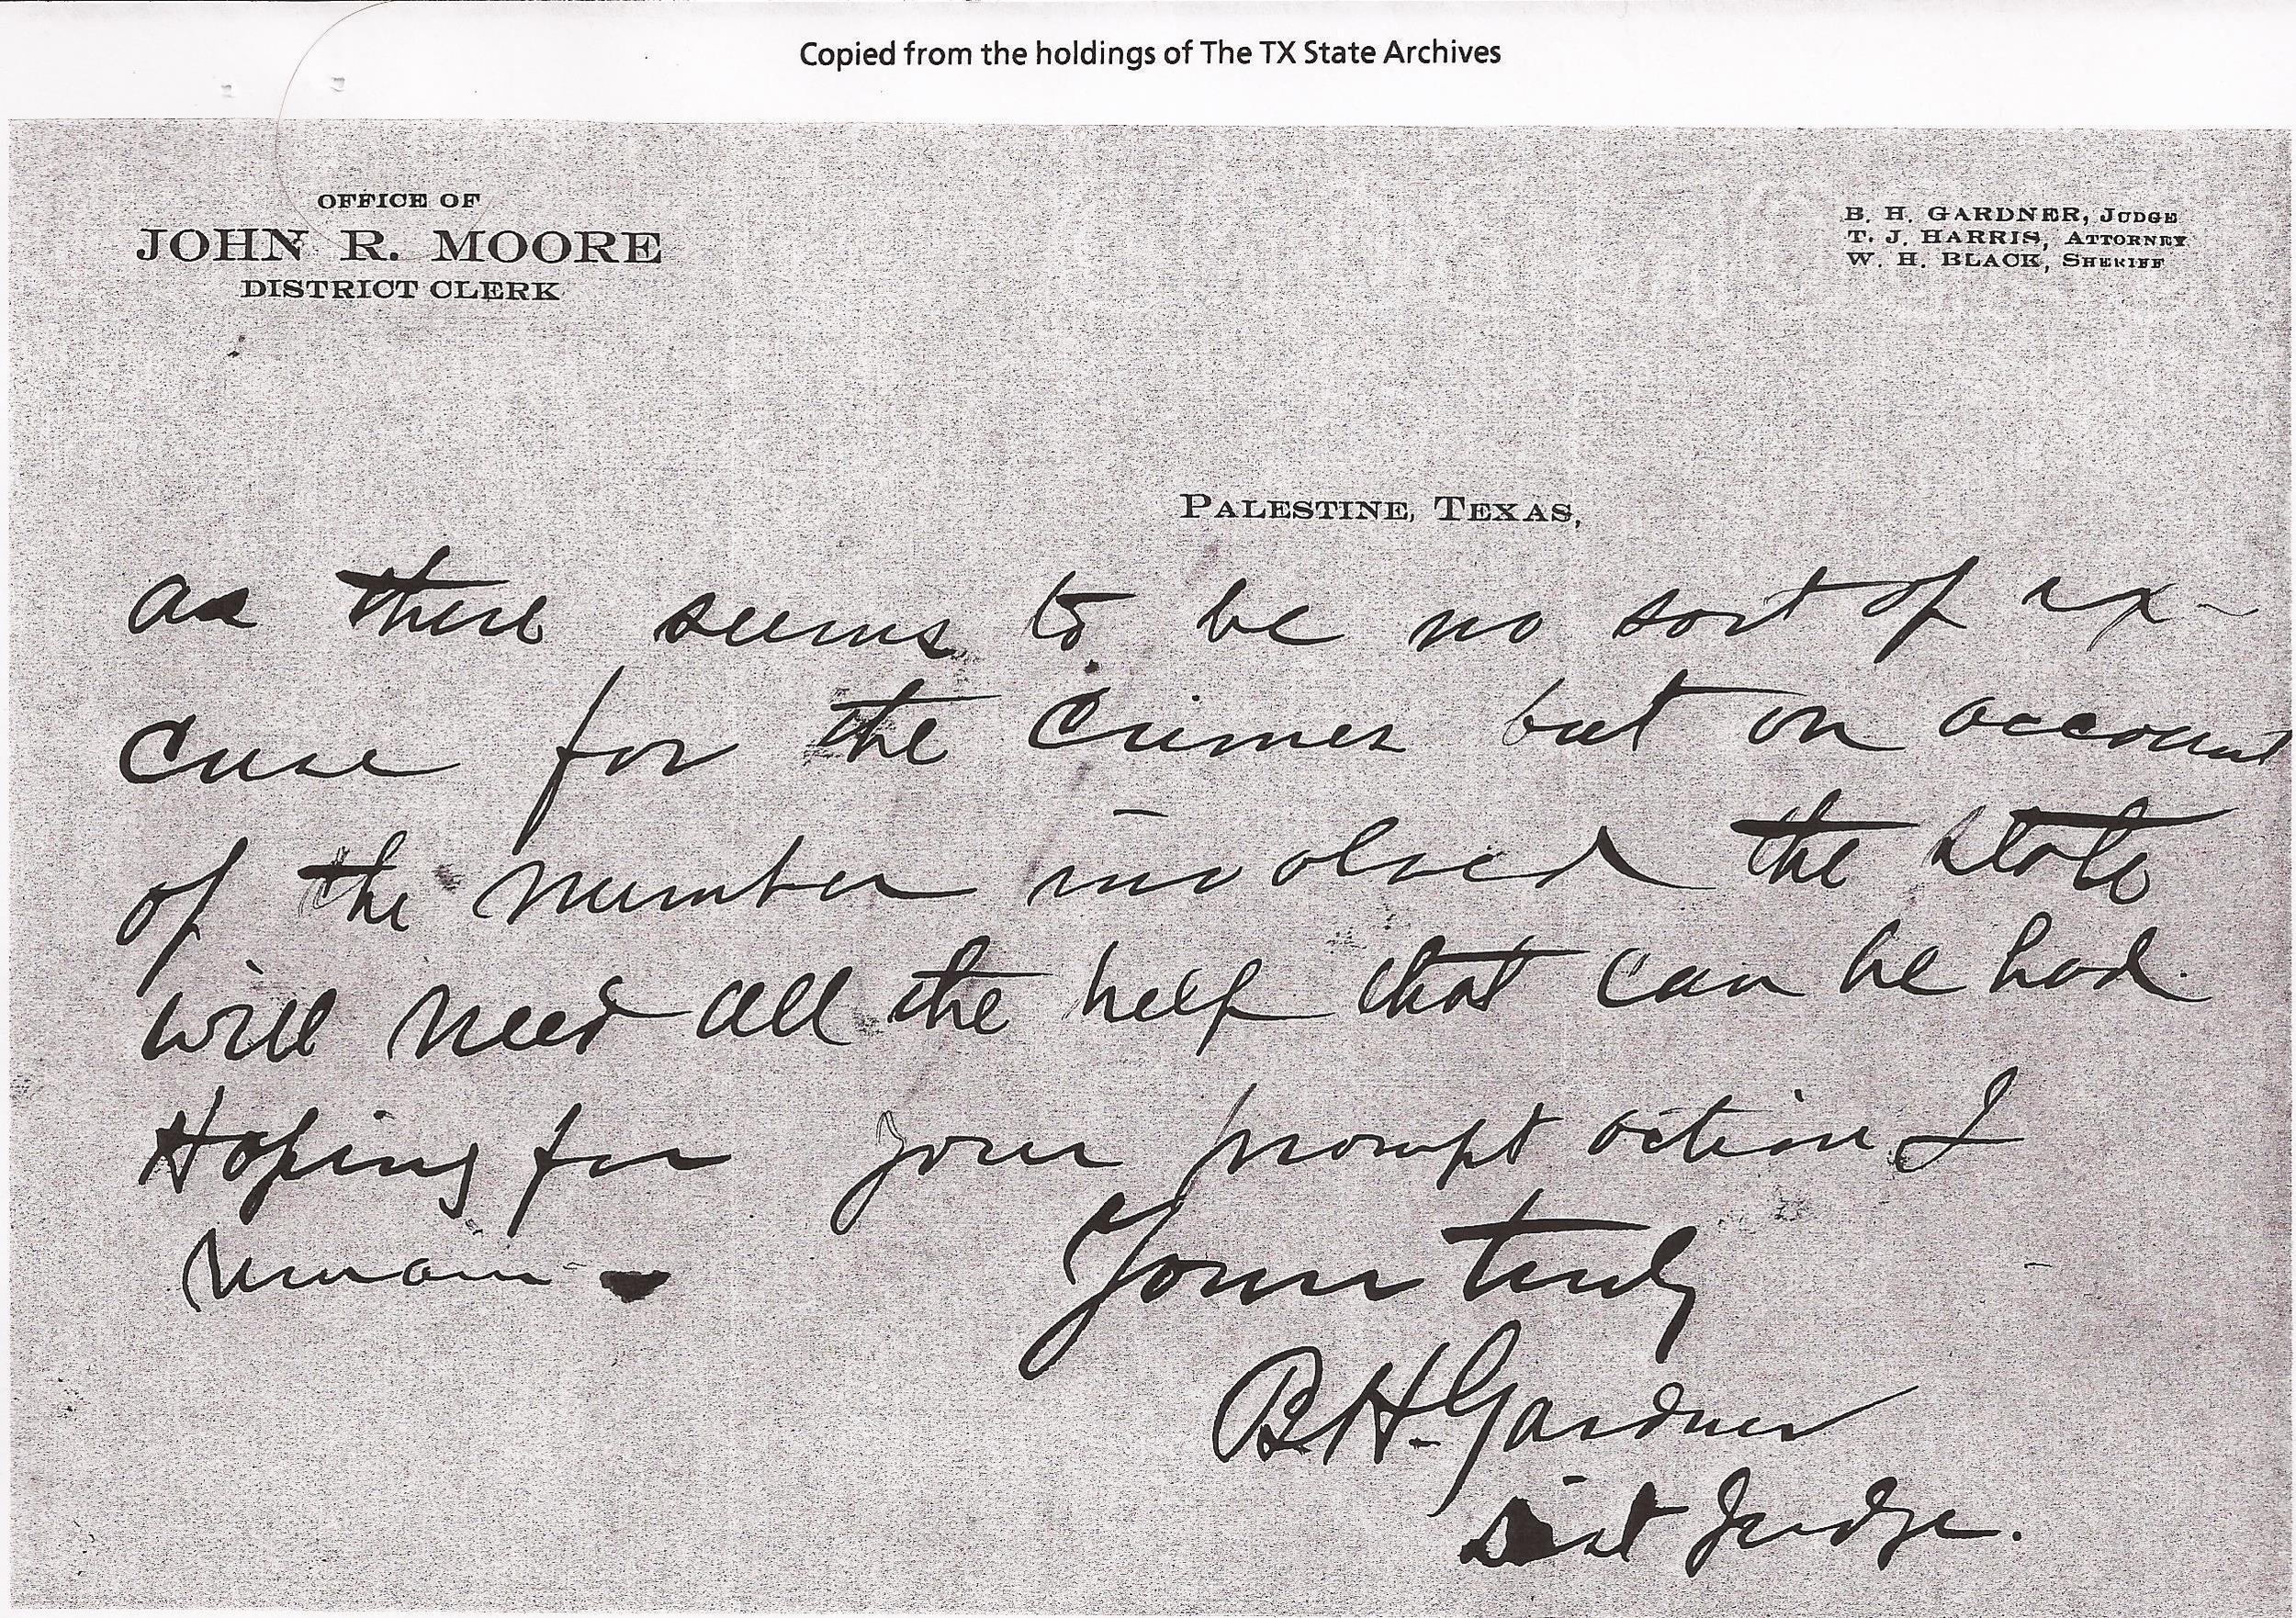 Copied from the holdings of The TX State Archives
OFFICE OF
JOHN R. MOORE
DISTRICT CLERK
B. H. GARDNER, JUDGE
T. J. HARRIS, ATTORNEY
W. H. BLACK, SHERIFF
PALESTINE, TEXAS,
as there seems to be no sort of ex-
cuse for the crimes but on account
of the number involved the state
will need all the help that can be had.
Hoping for your prompt action I
remain
Yours truly
B.H. Gardner
Dist Judge.